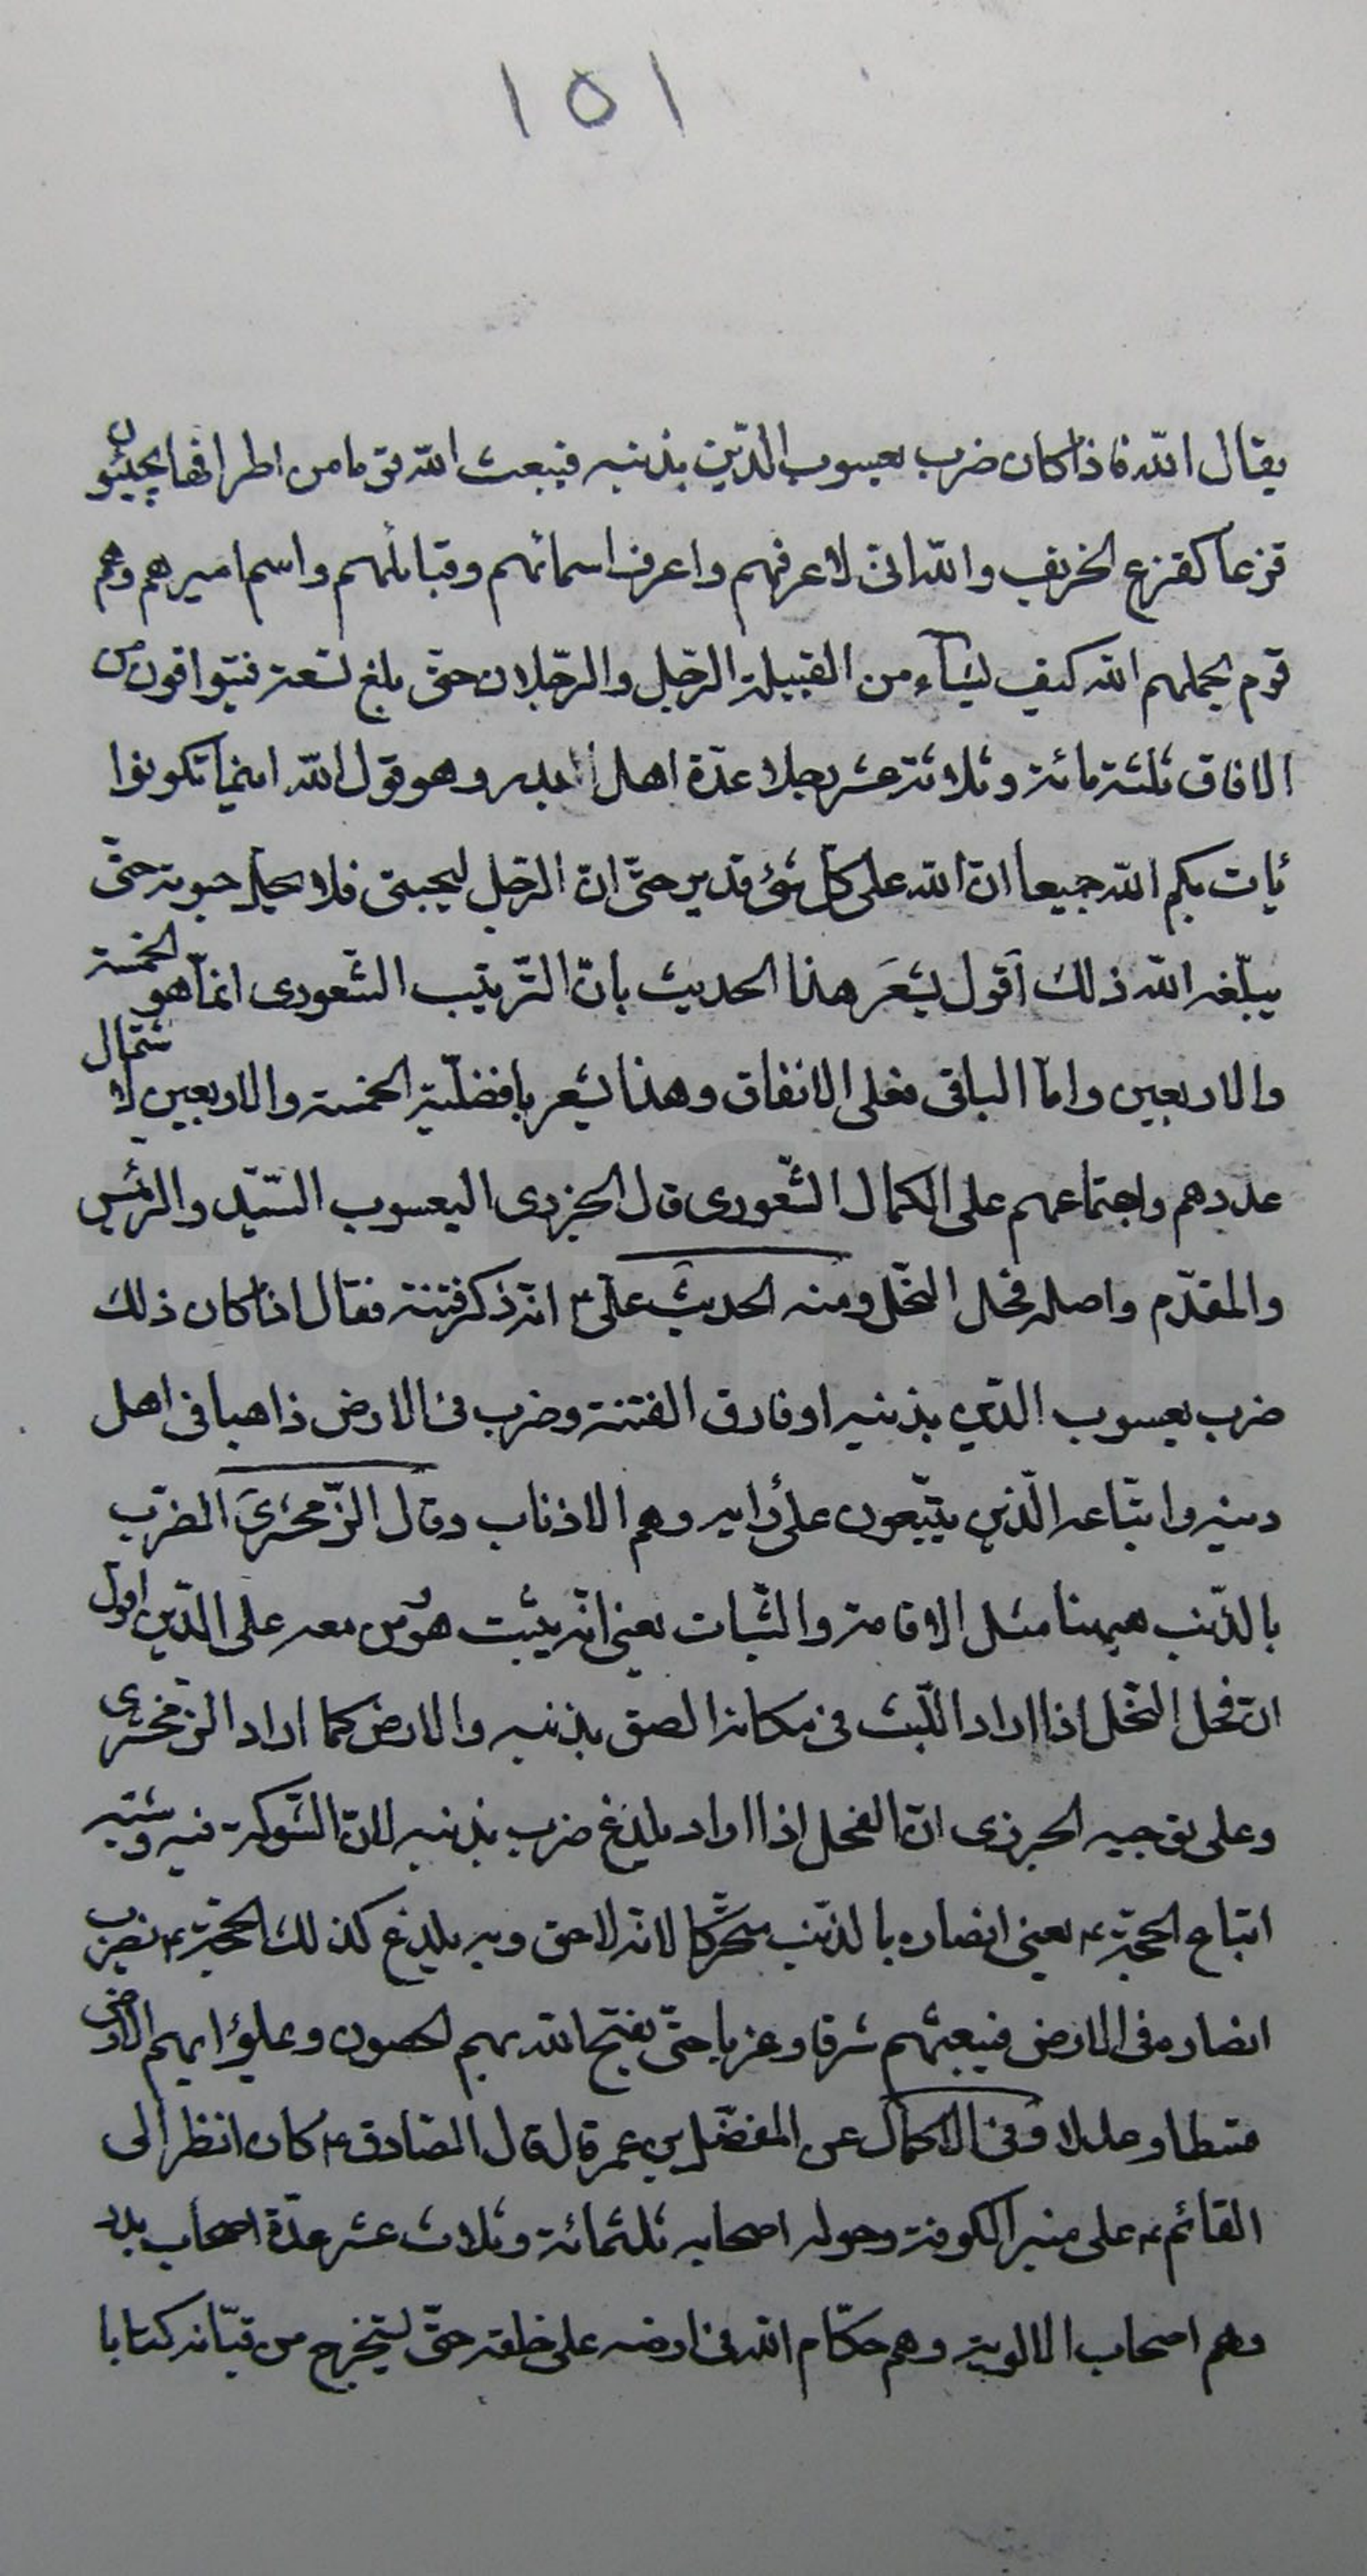 ١٥١
يقال الله فاذا كان ضرب يعسوب الدّين بذنبه فيبعث الله قوما من اطرافها يجيئون
قزعا كقزع الخريف والله انى لاعرفهم واعرف اسمائهم وقبائلهم واسم اميرهم وهم
قوم يحملهم الله كيف يشآء من القبيلة الرّجل والرّجلان حتّى بلغ تسعة فيتوافون من
الافاق ثلثة مائة وثلاثة عشر رجلا عدّة اهل بدر وهو قول الله اينما تكونوا
يات بكم الله جميعا انّ الله على كلّ شئ قدير حتّى انّ الرّجل ليحبتى فلا يحلّ حبوته حتّى
يبلّغه الله ذلك اقول يشعر هذا الحديث بانّ التّرتيب الشّعورى انّما هو الخمسة
والاربعين وامّا الباقى فعلى الانفاق وهذا يشعر بافضليّة الخمسة والاربعين لاشتمال
عددهم واجتماعهم على الكمال الشّعورى قال الجزرى اليعسوب السّيّد والرئيس
والمقدّم واصله فحل النّحل ومنه الحديث علىّ ع انّه ذكر فتنة فقال اذا كان ذلك
ضرب يعسوب الدّين بذنبه او فارق الفتنة وضرب فى الارض ذاهبا فى اهل
دينه واتّباعه الّذين يتّبعون على رأيه وهم الاذناب وقال الزّمخشرىّ الضّرب
بالذّنب هيهنا مثل الاقامة والثّبات يعنى انّه يثبت هو من معه على الدّين اقول
انّ فحل النّحل اذا اراد اللّبث فى مكان الصق بذنبه والارض كما اراد الزّمخشرى
وعلى توجيه الجزرى انّ الفحل اذا اراد يلدغ ضرب بذنبه لانّ الشّوكة فيه وشبه
اتباع الحجّة ع يعنى انصاره بالذّنب لانّه لاحق وبه يلدغ كذلك الحجّة ع يضرب
انصاره فى الارض فيبعثهم شرقا وغربا حتّى يفتح الله بهم الحصون ويملؤا بهم الارض
قسطا وعدلا وفى الاكمال عن المفضّل بن عمر قال قال الصّادق ع كان انظر الى
القائم ع على منبر الكوفة وحوله اصحابه ثلثمائة وثلاث عشر عدّة اصحاب بدر
وهم اصحاب الالوية وهم حكّام الله فى ارضه على خلقه حتّى يستخرج من قبائه كتابا